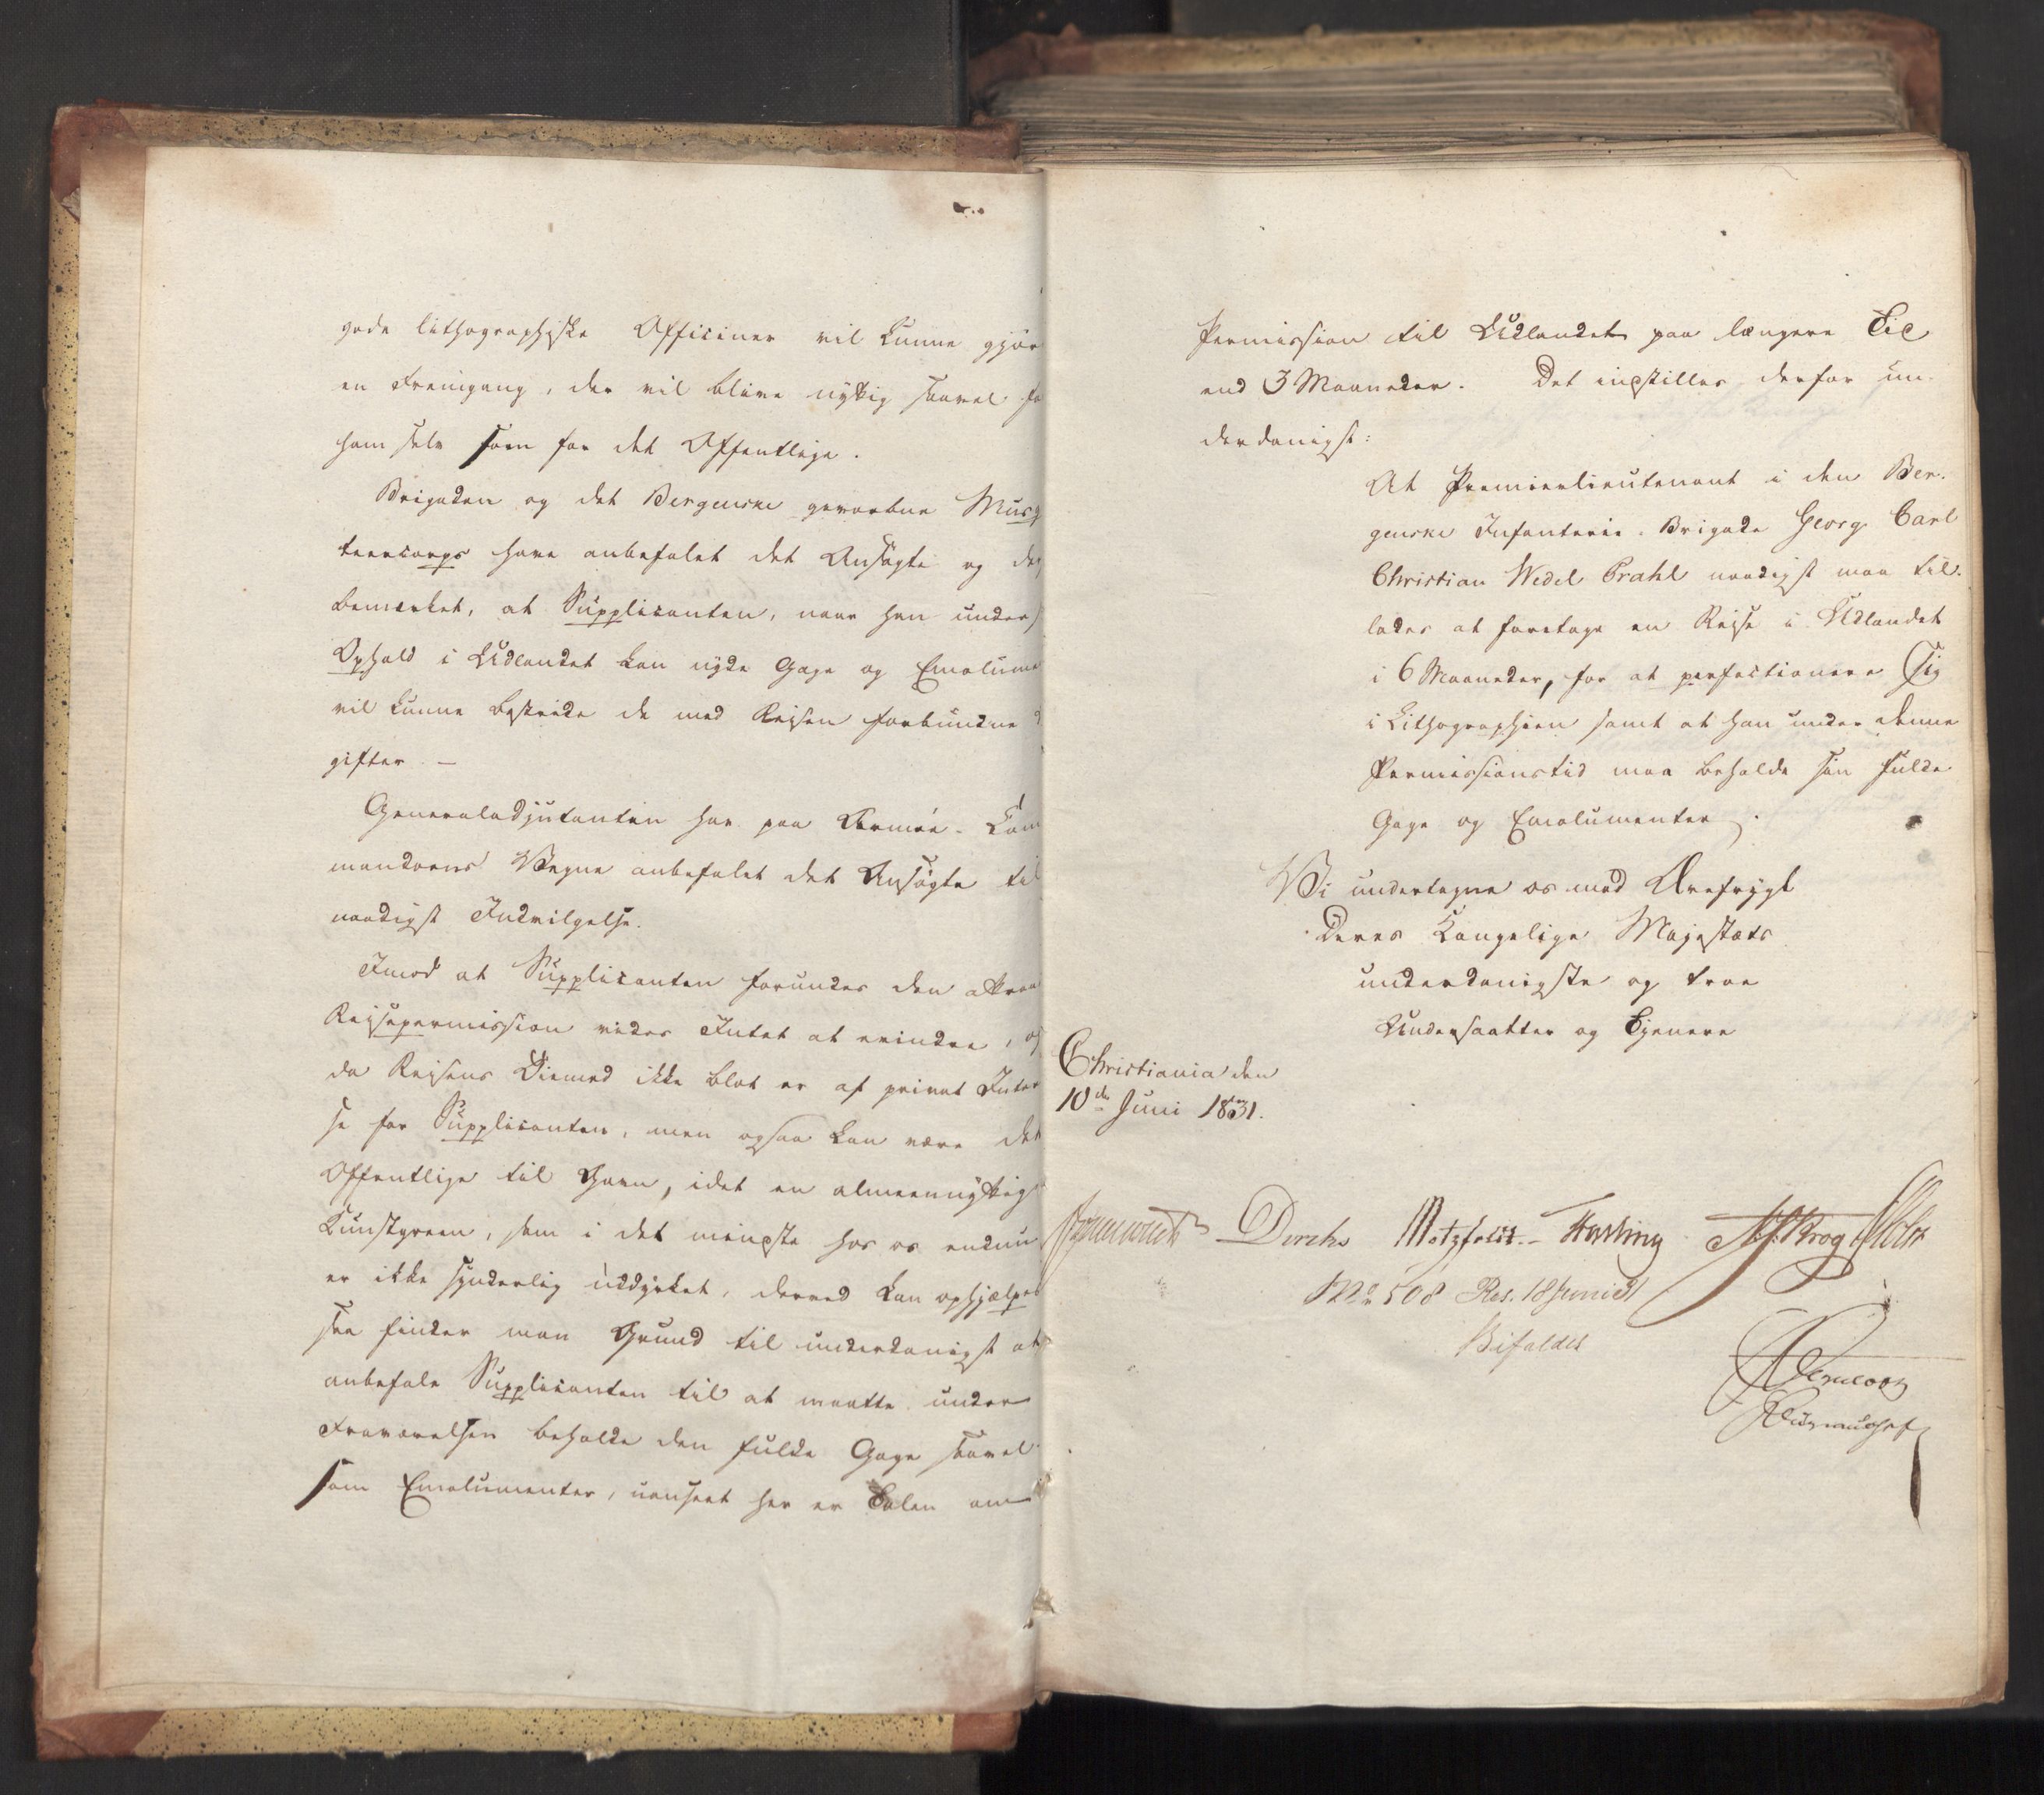 gode lithographiske Officiner vil kunne gjør
en Fremgang, der vil blive nyttig saavel fo
ham selv som for det Offentlige.
Brigaden og det Bergenske gevorbne Musq
teercorps have anbefalet det Ansøgte og de
bemærket, at Supplicanten, naar han under s
Ophold i Udlandet kan nyde Gage og Emolume
vil kunne bestride de med Reisen forbundne
gifter. —
Generaladjutanten har paa Armée-Com
mandoens Vegne anbefalet det Ansøgte til
naadigst Indvilgelse.
Imod at Supplicanten forundes den attraa
Reisepermission vides Intet at erindre, og
da Reisens Øiemed ikke blot er af privat Inter
se for Supplicanten, men ogsaa kan være det
Offentlige til Gavn, idet en almeennyttig
Kunstgreen, som i det mindste hos os endnu
er ikke synderlig uddyrket, derved kan ophjælpes
saa finder man Grund til underdanigst at
anbefale Supplicanten til at maatte under
Fraværelsen beholde den fulde Gage saavel
som Emolumenter, uanseet her er Talen om
Permission til Udlandet paa længere Tid
end 3 Maaneder. Det indstilles derfor un-
derdanigst:
At Premierlieutenant i den Ber-
genske Infanterie-Brigade Georg Carl
Christian Wedel Prahl naadigst maa til-
lades at foretage en Reise i Udlandet
i 6 Maaneder, for at perfectionere Sig
i Lithographien samt at han under denne
Permissionstid maa beholde sin fulde
Gage og Emolumenter.
Vi undertegne os med Ærefrygt
Deres Kongelige Majestæts
underdanigste og troe
Undersaatter og Tjenere
Christiania den
10de Juni 1831.
Diriks Motzfeldt Fasting Krog Holst
No 508 Res. 18 Juni 31
Bifaldes